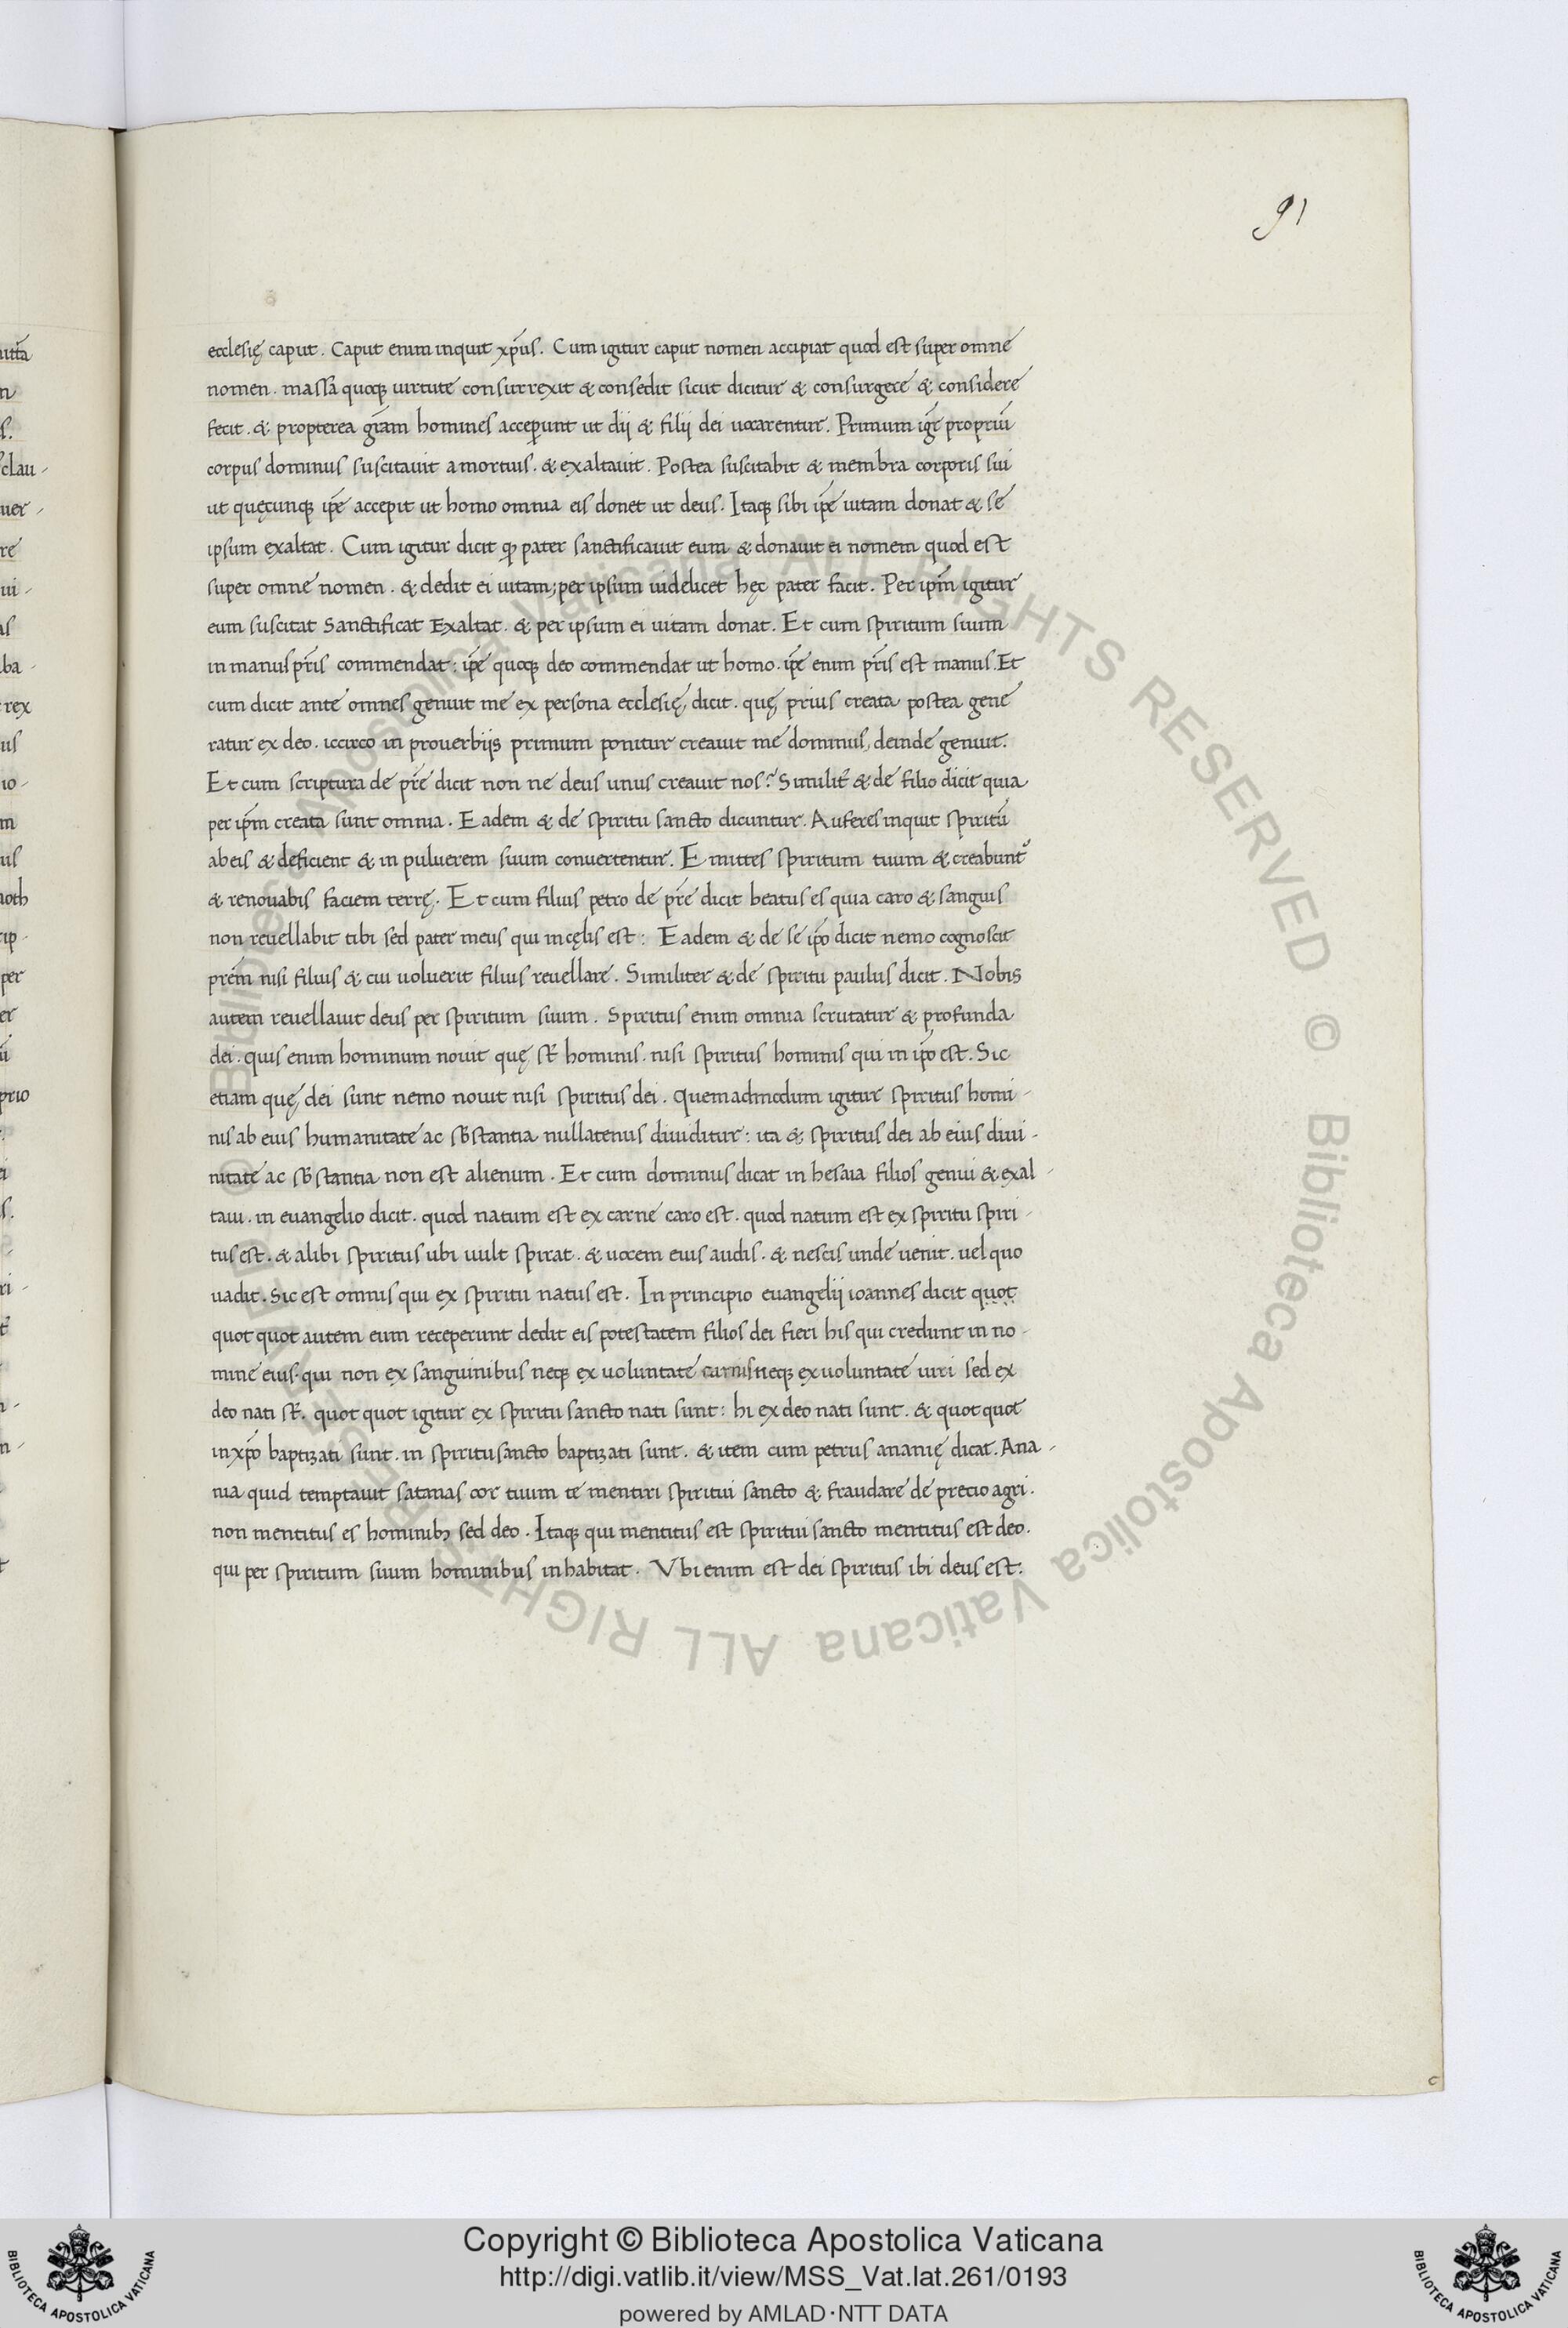 91
ecclesię caput. Caput enim inquit xp̃us. Cum igitur caput nomen accipiat quod est super omne
nomen. massa quoqꝫ uirtute consurrexit & consedit sicut dicitur & consurgere & considere
fecit. & propterea gr̃am homines acceperunt ut dij & filij dei uocarentur. Primum igr̃ propriũ
corpus dominus suscitauit amortuis. & exaltauit. Postea suscitabit & membra corporis sui
ut quęcunqꝫ ip̃e accepit ut homo omnia eis donet ut deus. Itaqꝫ sibi ip̃e uitam donat & se
ipsum exaltat. Cum igitur dicit ꝙ pater sanctificauit eum & donauit ei nomem quod est
super omne nomen. & dedit ei uitam; per ipsum uidelicet hęc pater facit. Per ip̃m igitur
eum suscitat Sanctificat Exaltat. & per ipsum ei uitam donat. Et cum spiritum suum
in manus pr̃is commendat: ip̃e quoqꝫ deo commendat ut homo. ip̃e enim pr̃is est manus. Et
cum dicit ante omnes genuit me ex persona ecclesię dicit. quę prius creata postea gene
ratur ex deo. iccirco in prouerbijs primum ponitur creauit me dominus, deinde genuit.
Et cum scriptura de pr̃e dicit non ne deus unus creauit nos? Similit̃ & de filio dicit quia
per ip̃m creata sunt omnia. Eadem & de spiritu sancto dicuntur. Auferes inquit spiritũ
ab eis & deficient & in puluerem suum conuertentur. Emittes spiritum tuum & creabunt᷑
& renouabis faciem terrę. Et cum filius petro de pr̃e dicit beatus es quia caro & sanguis
non reuellabit tibi sed pater meus qui in cęlis est: Eadem & de se ip̃o dicit nemo cognoscit
pr̃em nisi filius & cui uoluerit filius reuellare. Similiter & de spiritu paulus dicit. Nobis
autem reuellauit deus per spiritum suum. Spiritus enim omnia scrutatur & profunda
dei. quis enim hominum nouit quę st̃ hominis. nisi spiritus hominis qui in ip̃o est. Sic
etiam quę dei sunt nemo nouit nisi spiritus dei. quemadmodum igitur spiritus homi-
nis ab eius humanitate ac sb̃stantia nullatenus diuiditur: ita & spiritus dei ab eius diui-
nitate ac sb̃stantia non est alienum. Et cum dominus dicat in hesaia filios genui & exal-
taui. in euangelio dicit. quod natum est ex carne caro est. quod natum est ex spiritu spiri-
tus est. & alibi spiritus ubi uult spirat. & uocem eius audis. & nescis unde uenit. uel quo
uadit. Sic est omnis qui ex spiritu natus est. In principio euangelij ioannes dicit quot
quot quot autem eum receperunt dedit eis potestatem filios dei fieri his qui credunt in no-
mine eius. qui non ex sanguinibus neqꝫ ex uoluntate carnis neqꝫ ex uoluntate uiri sed ex
deo nati st̃. quot quot igitur ex spiritu sancto nati sunt: hi ex deo nati sunt. & quot quot
in xp̃o baptizati sunt. in spiritu sancto baptizati sunt. & item cum petrus ananię dicat. Ana-
nia quid temptauit satanas cor tuum te mentiri spiritui sancto & fraudare de precio agri.
non mentitus es hominibꝫ sed deo. Itaqꝫ qui mentitus est spiritui sancto mentitus est deo.
qui per spiritum suum hominibus inhabitat. Vbi enim est dei spiritus ibi deus est:
c
Copyright © Biblioteca Apostolica Vaticana
http://digi.vatlib.it/view/MSS_Vat.lat.261/0193
powered by AMLAD·NTT DATA
BIBLIOTECA APOSTOLICA VATICANA
BIBLIOTECA APOSTOLICA VATICANA